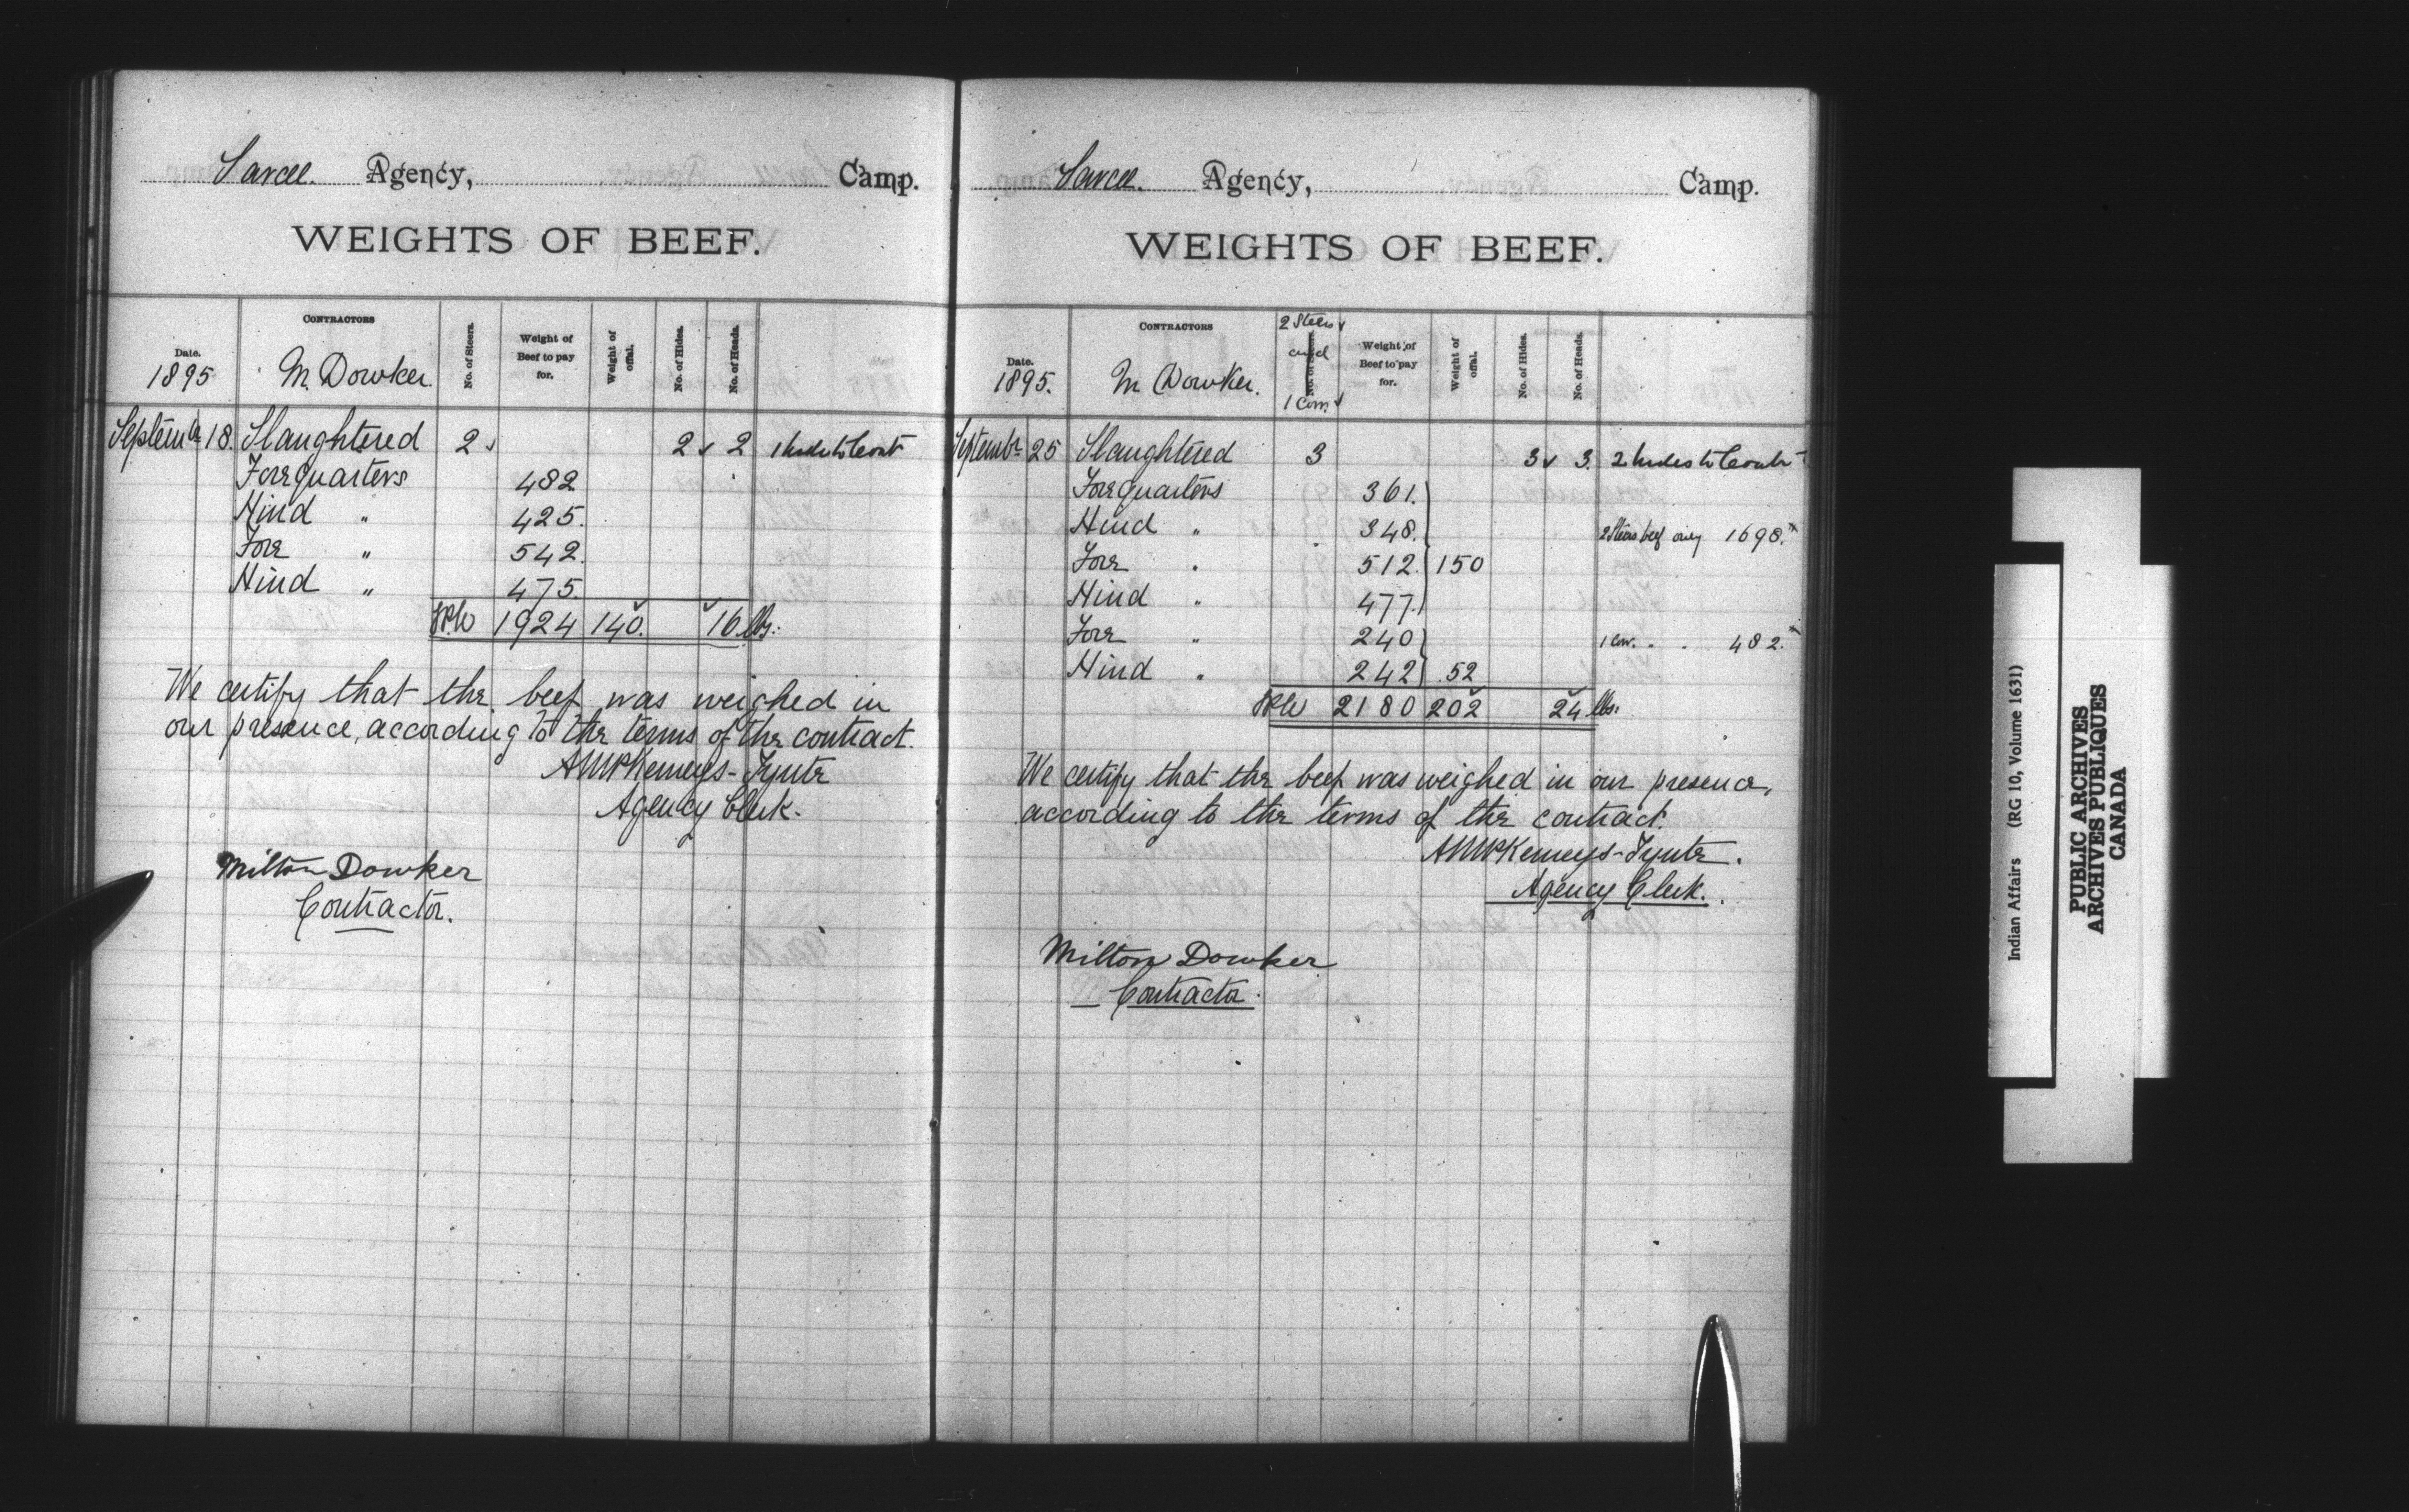 Sarcee. Agency, Camp.
WEIGHTS OF BEEF.
Date. CONTRACTORS No. of Steers. Weight of Beef to pay for. Weight of offal. No. of Hides. No. of Heads.
1895 M Dowker.
Septembr 18. Slaughtered 2 2 2 1 hide to Contr
Forequarters 482
Hind " 425.
Fore " 542.
Hind " 475.
1924 140. 16 lbs.
We certify that the beef was weighed in
our presence, according to the terms of the contract.
Kemeys-Tynte
Agency Clerk.
Milton Dowker
Contractor.
Sarcee. Agency, Camp.
WEIGHTS OF BEEF.
Date. CONTRACTORS 2 Steers and 1 Cow. No. of Steers. Weight of Beef to pay for. Weight of offal. No. of Hides. No. of Heads.
1895. M Dowker.
Septembr 25 Slaughtered 3 3 3. 2 hides to Contr
Forequarters 361.
Hind " 348. 2 Steers beef only 1698.
Fore " 512. 150
Hind " 477.
Fore " 240 1 Cow. " " 482.
Hind " 242 52
2180 202 24 lbs.
We certify that the beef was weighed in our presence,
according to the terms of the contract.
Kemeys-Tynte.
Agency Clerk.
Milton Dowker
Contractor.
Indian Affairs (RG 10, Volume 1631)
PUBLIC ARCHIVES
ARCHIVES PUBLIQUES
CANADA